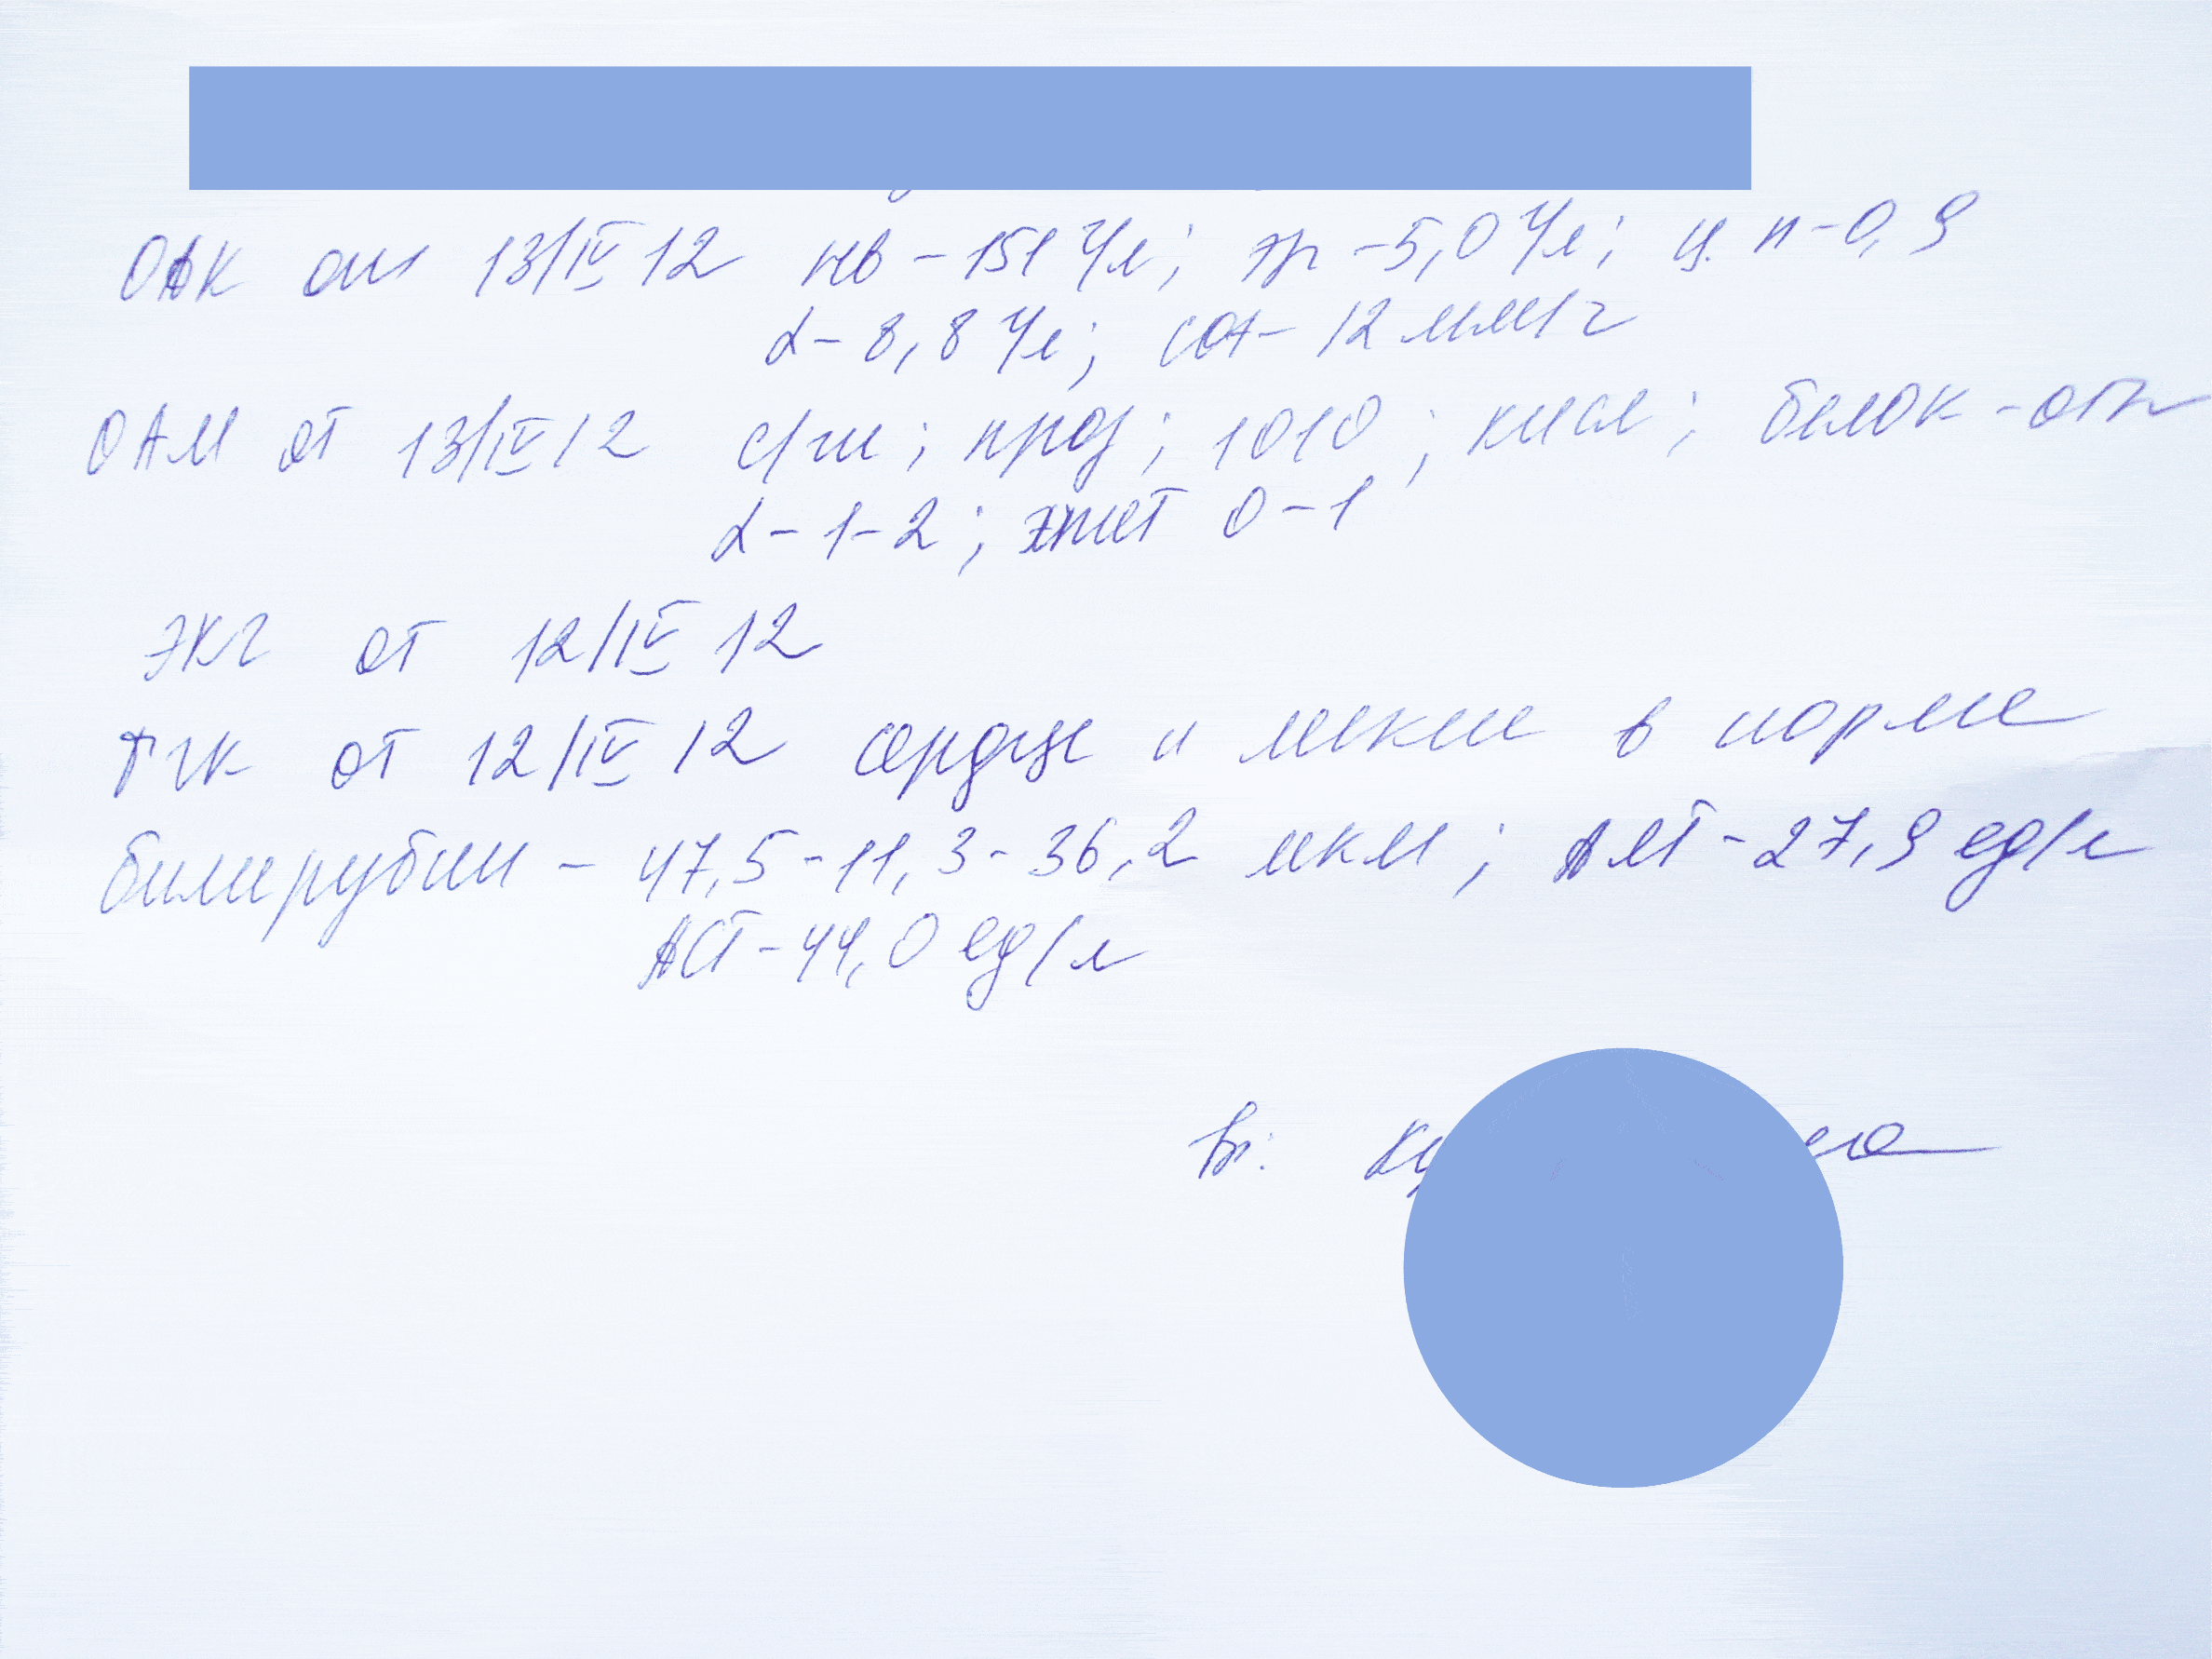 ОАК от 13/IV 12 Нв - 151 г/л; эр - 5,0 г/л; ц. п - 0,9
L - 8,8 г/л; соэ - 12 мм/г
ОАМ от 13/IV 12 с/ж; проз; 1010; кисл; белок - отр
L - 1-2; эпит 0-1
ЭКГ от 12/IV 12
ГК от 12/IV 12 сердце и легкие в норме
билирубин - 47,5 - 11,3 - 36,2 мкм; АЛТ - 27,9 ед/л
АСТ - 44,0 ед/л
Вр: